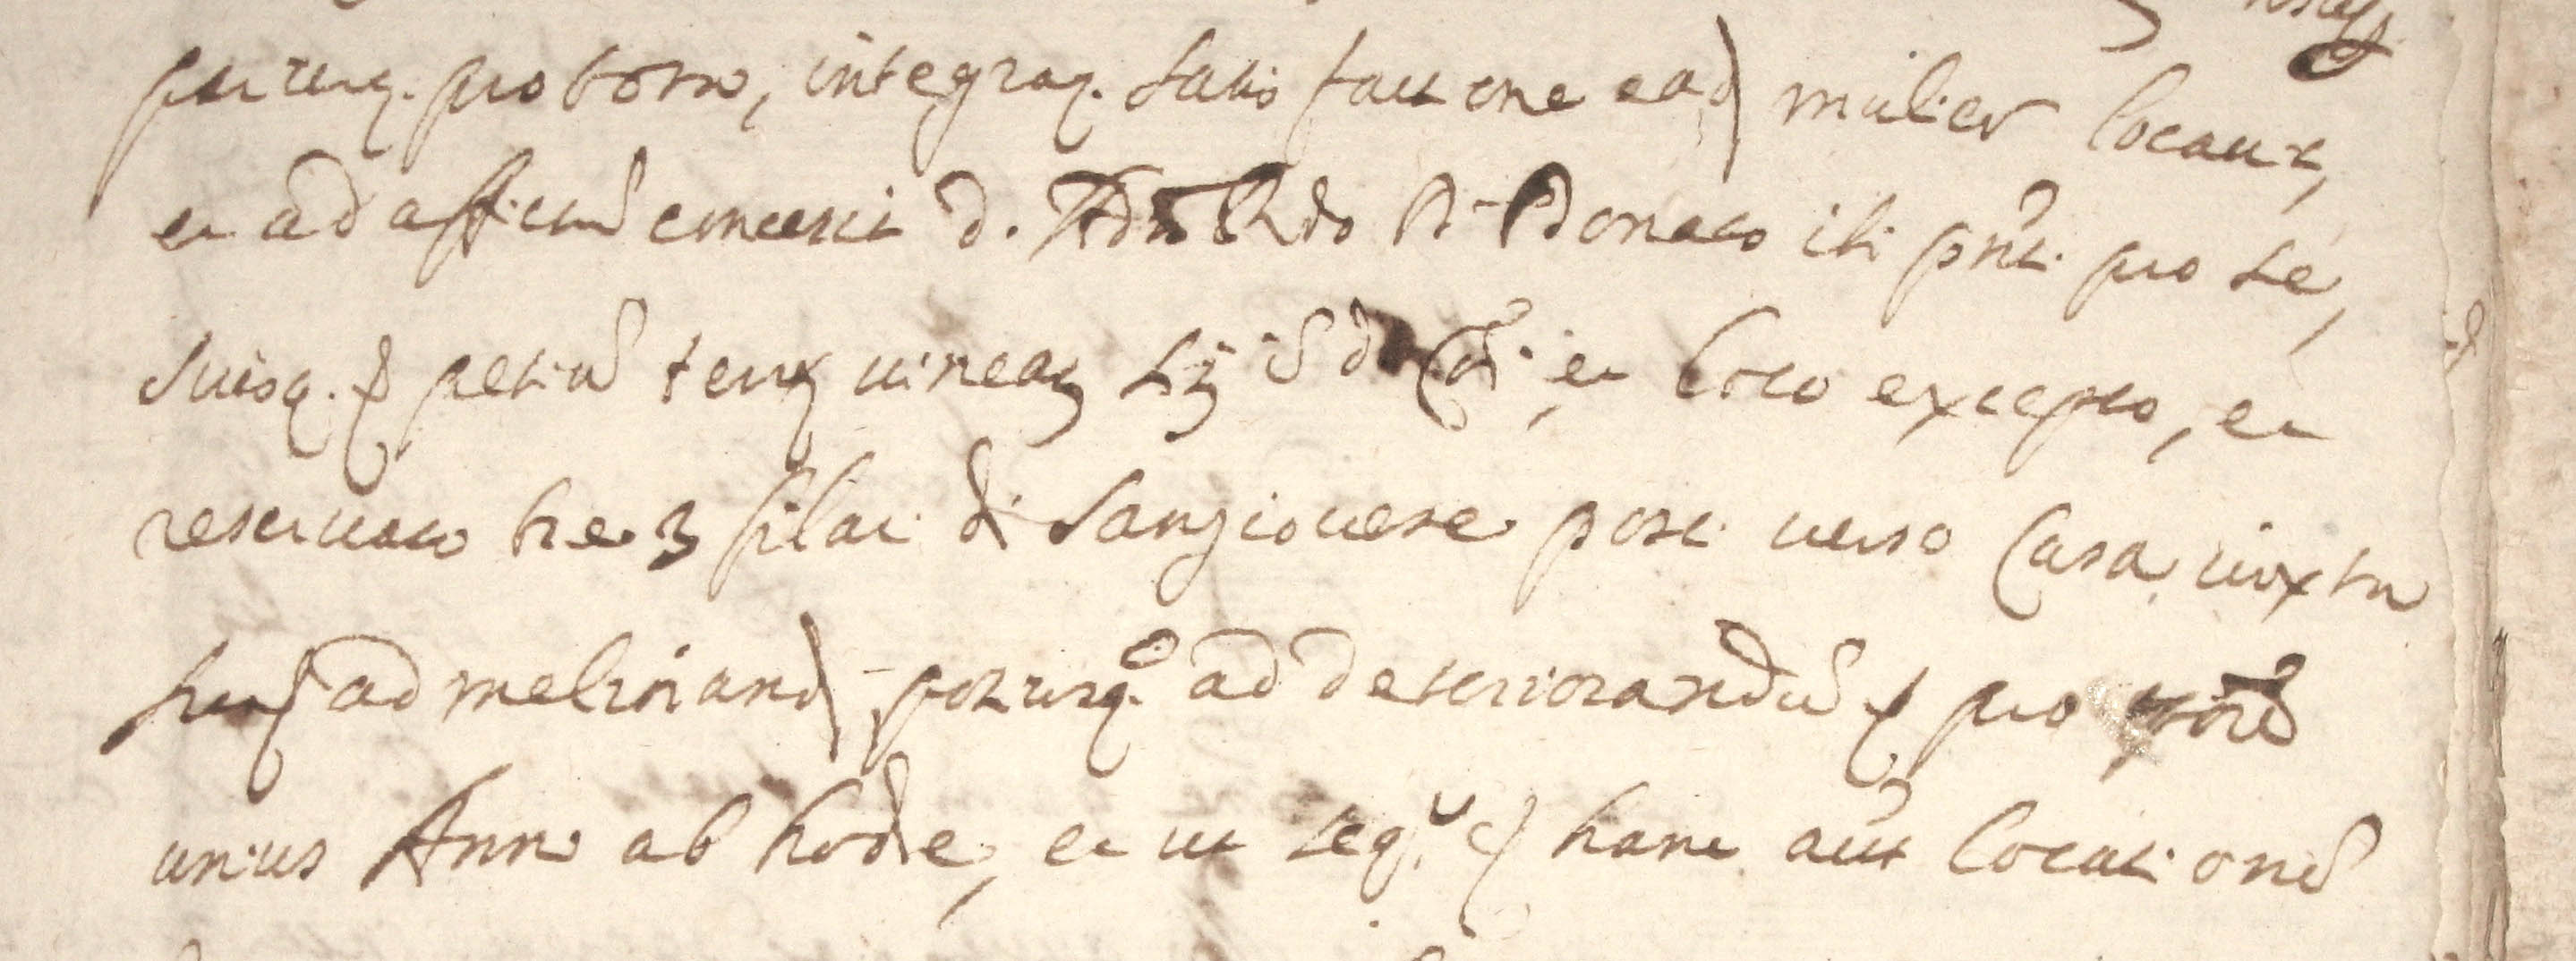 pariterq. pro tota, integraq. satisfactione ead mulier locavit,
et ad affictum concessit d. Donato ibi pñti pro se,
suisq. petiam terrę vineatę et loco excepto, et
reservato tre 3 filari di Sangiovese posti verso Casa iuxta
ad meliorand potiusq. ad deteriorandũ pro
unius Anni ab hodie, et ut seqr. hanc aũt locationẽ